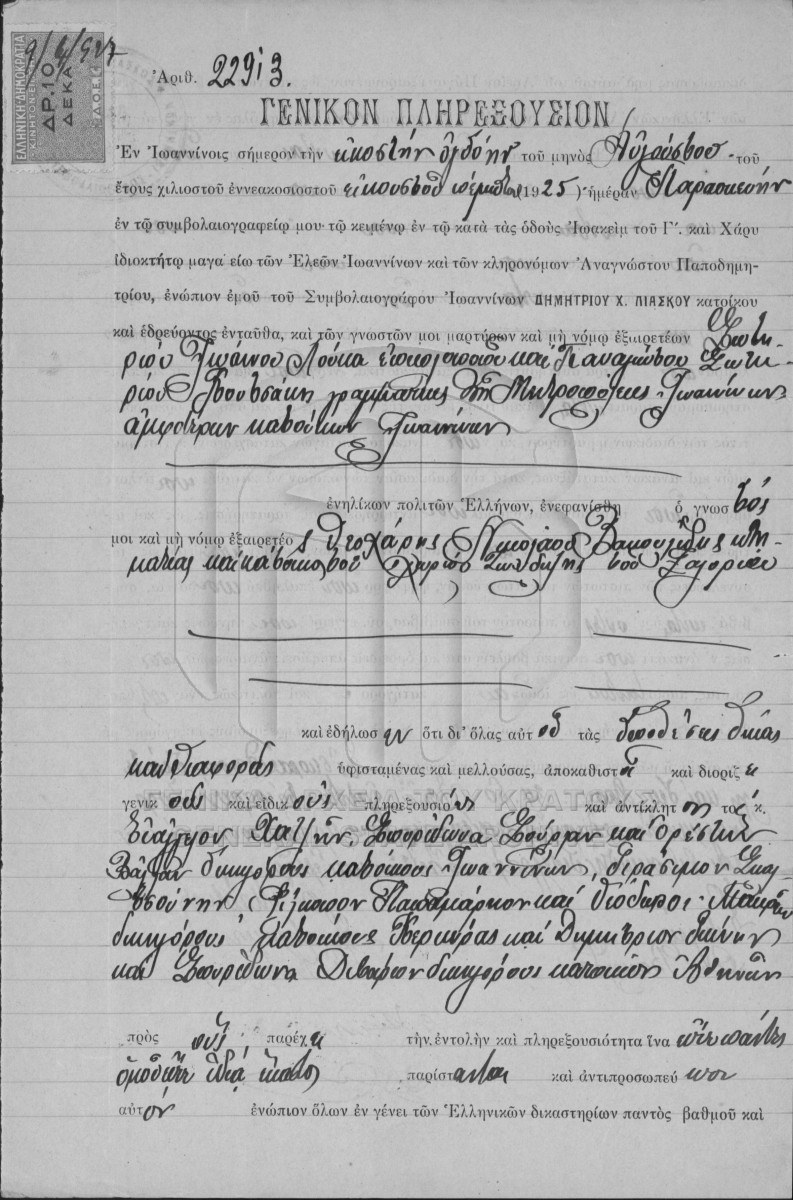 9/6/927
ΕΛΛΗΝΙΚΗ ΔΗΜΟΚΡΑΤΙΑ
ΔΡ. 10
ΔΕΚΑ
Ἀριθ. 22913.
ΓΕΝΙΚΟΝ ΠΛΗΡΕΞΟΥΣΙΟΝ
Ἐν Ἰωαννίνοις σήμερον τὴν εἰκοστὴν ὀγδόην τοῦ μηνὸς Αὐγούστου τοῦ
ἔτους χιλιοστοῦ ἐννεακοσιοστοῦ εἰκοστοῦ πέμπτου (1925) ἡμέραν Παρασκευὴν
ἐν τῷ συμβολαιογραφείῳ μου τῷ κειμένῳ ἐν τῷ κατὰ τὰς ὁδοὺς Ἰωακεὶμ τοῦ Γ΄. καὶ Χάρυ
ἰδιοκτήτῳ μαγα είῳ τῶν Ἐλεῶν Ἰωαννίνων καὶ τῶν κληρονόμων Ἀναγνώστου Παποδημη-
τρίου, ἐνώπιον ἐμοῦ τοῦ Συμβολαιογράφου Ἰωαννίνων ΔΗΜΗΤΡΙΟΥ Χ. ΛΙΑΣΚΟΥ κατοίκου
καὶ ἑδρεύοντος ἐνταῦθα, καὶ τῶν γνωστῶν μοι μαρτύρων καὶ μὴ νόμῳ ἐξαιρετέων Σωτη-
ρίου Ἰωάννου Λούκα καὶ Παναγιώτου Σωτη-
ρίου γραμματέως τῆς Μητροπόλεως Ἰωαννίνων
ἀμφοτέρων κατοίκων Ἰωαννίνων
ἐνηλίκων πολιτῶν Ἑλλήνων, ἐνεφανίσθη ὁ γνωστός
μοι καὶ μὴ νόμῳ ἐξαιρετέος Θεοχάρης Νικολάου κτη-
ματίας καὶ κάτοικος τοῦ χωρίου τοῦ Ζαγορίου
καὶ ἐδήλωσεν ὅτι δι' ὅλας αὐτοῦ τὰς ὑποθέσεις δίκας
καὶ διαφορὰς ὑφισταμένας καὶ μελλούσας, ἀποκαθιστᾷ καὶ διορίζει
γενικοὺς καὶ εἰδικοὺς πληρεξουσίους καὶ ἀντίκλητον τοὺς κ.
Χατζῆν, Σπυρίδωνα Σούρλαν καὶ Ὀρέστην
δικηγόρους κατοίκους Ἰωαννίνων, Γεράσιμον Σκια-
Παπαμάρκον καὶ Θεόδωρον
δικηγόρους κατοίκους Κερκύρας καὶ Δημήτριον
καὶ Σπυρίδωνα δικηγόρους κατοίκους Ἀθηνῶν
πρὸς οὓς παρέχει τὴν ἐντολὴν καὶ πληρεξουσιότητα ἵνα εἴτε πάντες
ὁμοῦ εἴτε ἰδίᾳ ἕκαστος παρίστανται καὶ ἀντιπροσωπεύωσι
αὐτὸν ἐνώπιον ὅλων ἐν γένει τῶν Ἑλληνικῶν δικαστηρίων παντὸς βαθμοῦ καὶ